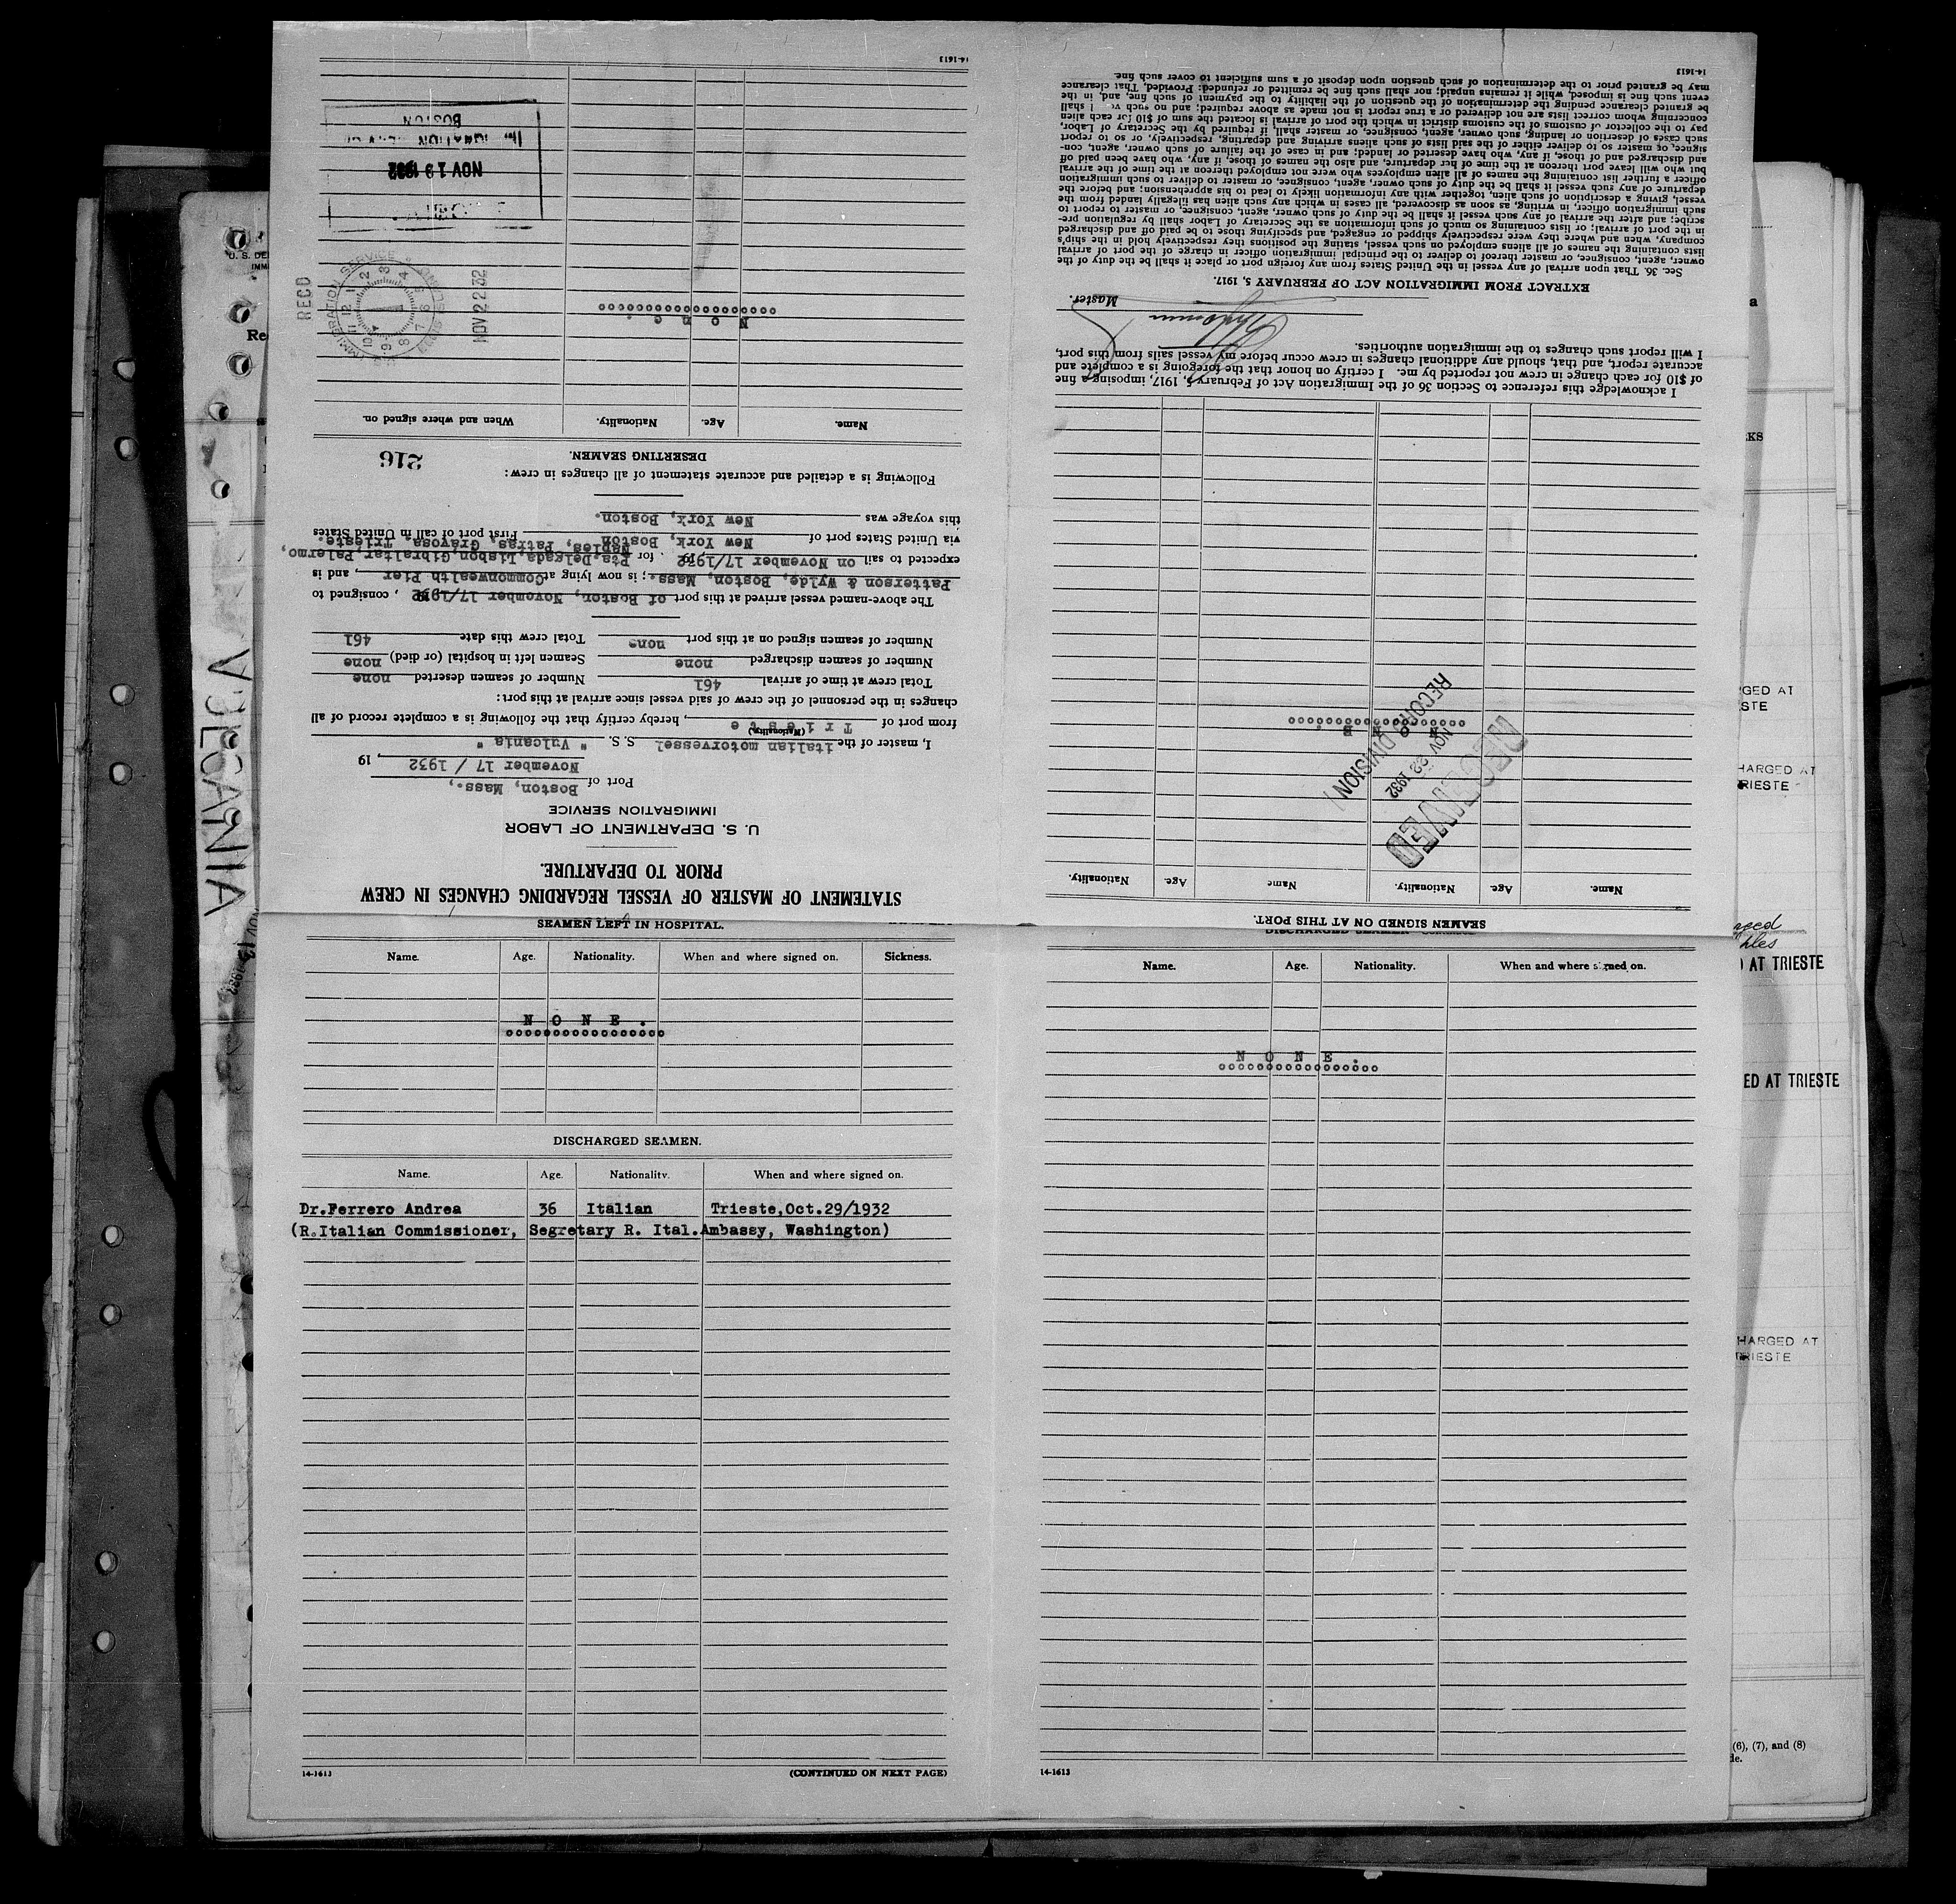 STATEMENT OF MASTER OF VESSEL REGARDING CHANGES IN CREW
PRIOR TO DEPARTURE.
U. S. DEPARTMENT OF LABOR
IMMIGRATION SERVICE
Port of Boston, Mass.,
November 17 / 1932, 19
I, master of the italian motorvessel S. S. " Vulcania "
(Nationality)
from port of Trieste, hereby certify that the following is a complete record of all
changes in the personnel of the crew of said vessel since arrival at this port:
Total crew at time of arrival 461 Number of seamen deserted none
Number of seamen discharged none Seamen left in hospital (or died) none
Number of seamen signed on at this port none Total crew this date 461
The above-named vessel arrived at this port of Boston, November 17/1932, consigned to
Patterson & Wylde, Boston, Mass.; is now lying at Commonwealth Pier, and is
expected to sail on November 17/1932. for Pta.Delgada, Lisbon, Gibraltar, Palermo,
Naples, Patras, Gravosa, Trieste.
via United States port of New York, Boston First port of call in United States
this voyage was New York, Boston.
Following is a detailed and accurate statement of all changes in crew:
DESERTING SEAMEN.
216
Name. Age. Nationality. When and where signed on.
N o n e .
REC'D
IMMIGRATION SERVICE
NOV 22 32
NOV 19 1932
BOSTON
14-1613
SEAMEN LEFT IN HOSPITAL.
Name. Age. Nationality. When and where signed on. Sickness.
N O N E .
DISCHARGED SEAMEN.
Name. Age. Nationality. When and where signed on.
Dr.Ferrero Andrea 36 Italian Trieste,Oct.29/1932
(R.Italian Commissioner, Segretary R. Ital.Ambassy, Washington)
14-1613 (CONTINUED ON NEXT PAGE)
Name. Age. Nationality. When and where signed on.
N O N E .
14-1613
SEAMEN SIGNED ON AT THIS PORT.
Name. Age. Nationality. Name Age. Nationality.
RECEIVED
NOV 22 1932
RECORD DIVISION
N O N E .
I acknowledge this reference to Section 36 of the Immigration Act of February 5, 1917, imposing fine
of $10 for each change in crew not reported by me. I certify on honor that the foregoing is a complete and
accurate report, and that, should any additional changes in crew occur before my vessel sails from this port,
I will report such changes to the immigration authorities.
Master.
EXTRACT FROM IMMIGRATION ACT OF FEBRUARY 5, 1917.
Sec. 36. That upon arrival of any vessel in the United States from any foreign port or place it shall be the duty of the
owner, agent, consignee, or master thereof to deliver to the principal immigration officer in charge of the port of arrival
lists containing the names of all aliens employed on such vessel, stating the positions they respectively hold in the ship's
company, when and where they were respectively shipped or engaged, and specifying those to be paid off and discharged
in the port of arrival; or lists containing so much of such information as the Secretary of Labor shall by regulation pre-
scribe; and after the arrival of any such vessel it shall be the duty of such owner, agent, consignee, or master to report to
such immigration officer, in writing, as soon as discovered, all cases in which any such alien has illegally landed from the
vessel, giving a description of such alien, together with any information likely to lead to his apprehension; and before the
departure of any such vessel it shall be the duty of such owner, agent, consignee, or master to deliver to such immigration
officer a further list containing the names of all alien employees who were not employed thereon at the time of the arrival
but who will leave port thereon at the time of her departure, and also the names of those, if any, who have been paid off
and discharged and of those, if any, who have deserted or landed; and in case of the failure of such owner, agent, con-
signee, or master so to deliver either of the said lists of such aliens arriving and departing, respectively, or so to report
such cases of desertion or landing, such owner, agent, consignee, or master shall, if required by the Secretary of Labor,
pay to the collector of customs of the customs district in which the port of arrival is located the sum of $10 for each alien
concerning whom correct lists are not delivered or a true report is not made as above required; and no such shall
be granted clearance pending the determination of the question of the liability to the payment of such fine, and, in the
event such fine is imposed, while it remains unpaid; nor shall such fine be remitted or refunded: Provided, That clearance
may be granted prior to the determination of such question upon deposit of a sum sufficient to cover such fine.
14-1613
VULCANIA
AT TRIESTE
ED AT TRIESTE
HARGED AT
TRIESTE
(6), (7), and (8)